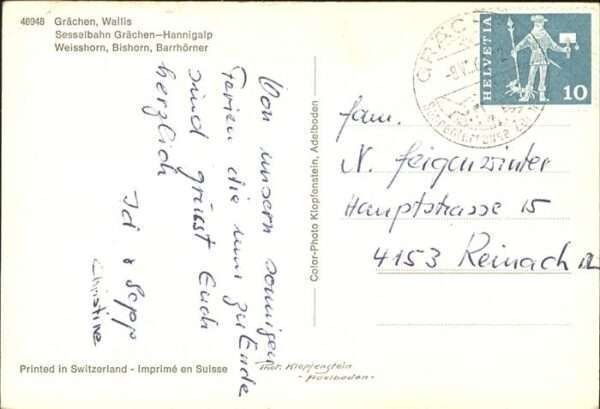 46948 Grächen, Wallis
Sesselbahn Grächen—Hannigalp
Weisshorn, Bishorn, Barrhörner
Von unsern sonnigen
Ferien die nun zu Ende
sind grüsst Euch
herzlich
Idi & Sepp
Christine
Color-Photo Klopfenstein, Adelboden
GRÄCH
HELVETIA
10
Fam.
N. Feigenwinter
Hauptstrasse 15
4153 Reinach BL
Printed in Switzerland - Imprimé en Suisse
Phot. Klopfenstein
- Adelboden -